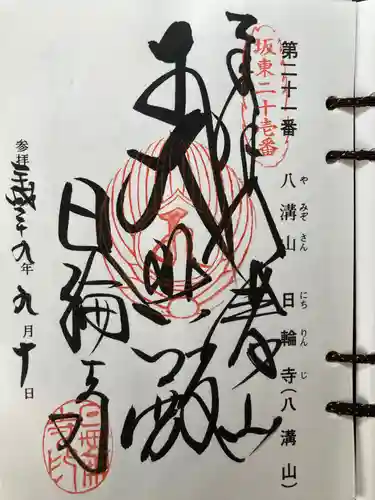 第二十一番 八溝山 日輪寺(八溝山)
やみぞさん にちりんじ
坂東二十壱番
八溝山
大悲殿
日輪寺
参拝 平成二十九年 九月十日